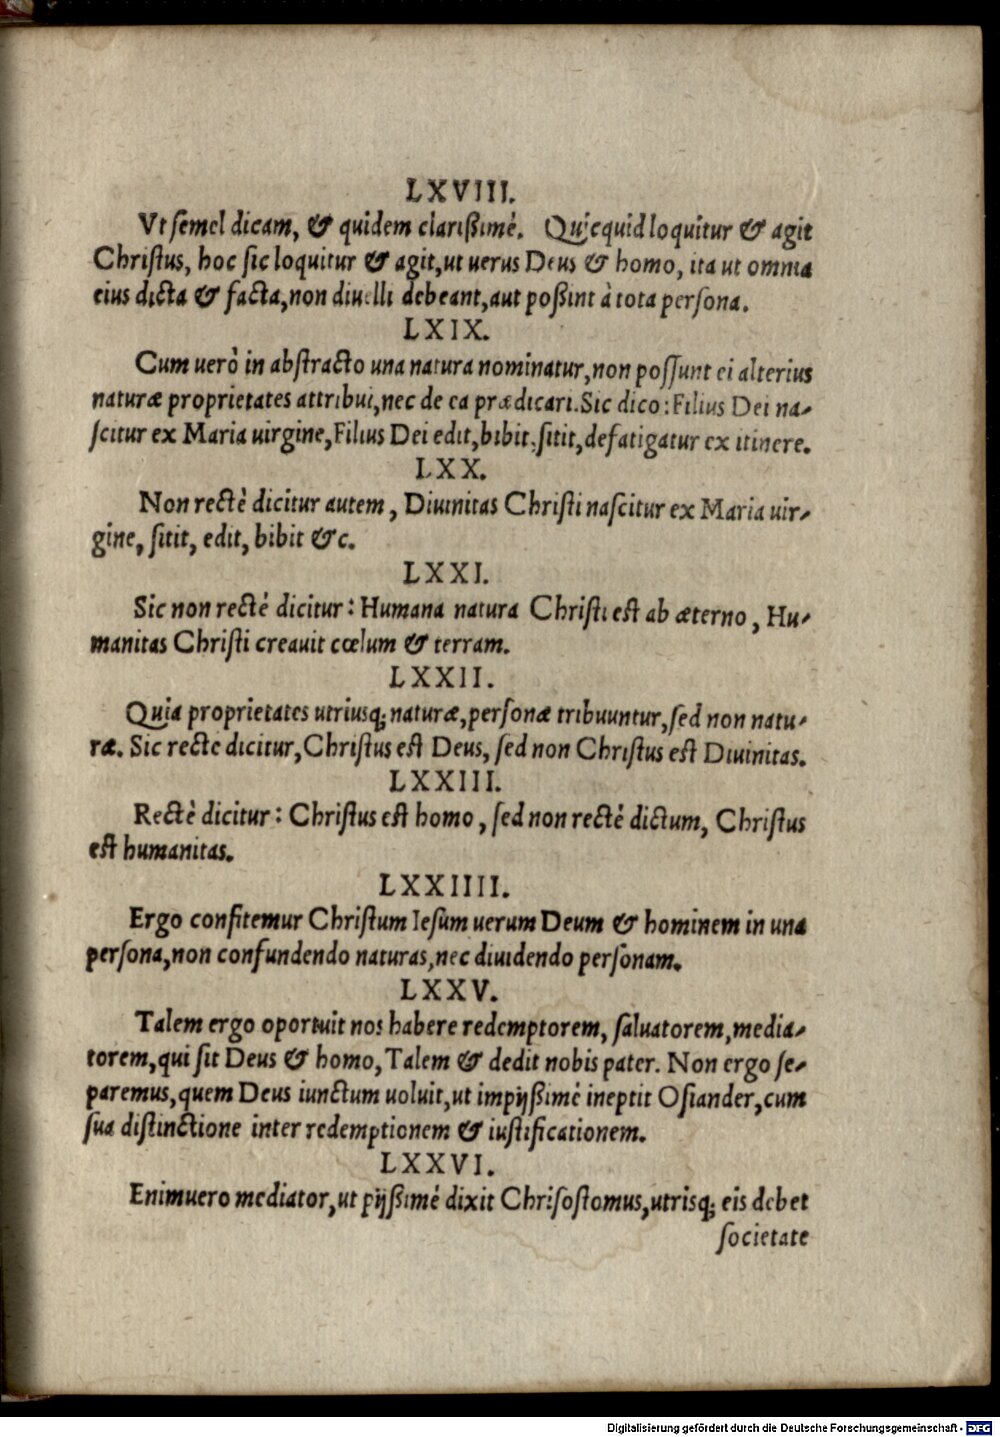 LXVIII.
Vt semel dicam, & quidem clarißimè. Quicquid loquitur & agit
Christus, hoc sic loquitur & agit, ut uerus Deus & homo, ita ut omnia
eius dicta & facta, non diuelli debeant, aut poßint à tota persona.
LXIX.
Cum uerò in abstracto una natura nominatur, non possunt ei alterius
naturæ proprietates attribui, nec de ea prædicari. Sic dico: Filius Dei na-
scitur ex Maria uirgine, Filius Dei edit, bibit, sitit, defatigatur ex itinere.
LXX.
Non rectè dicitur autem, Diuinitas Christi nascitur ex Maria uir-
gine, sitit, edit, bibit &c.
LXXI.
Sic non rectè dicitur: Humana natura Christi est ab æterno, Hu-
manitas Christi creauit cœlum & terram.
LXXII.
Quia proprietates utriusq; naturæ, personæ tribuuntur, sed non natu-
ræ. Sic recte dicitur, Christus est Deus, sed non Christus est Diuinitas.
LXXIII.
Rectè dicitur: Christus est homo, sed non rectè dictum, Christus
est humanitas.
LXXIIII.
Ergo confitemur Christum Iesum uerum Deum & hominem in una
persona, non confundendo naturas, nec diuidendo personam.
LXXV.
Talem ergo oportuit nos habere redemptorem, saluatorem, media-
torem, qui sit Deus & homo, Talem & dedit nobis pater. Non ergo se-
paremus, quem Deus iunctum uoluit, ut impijßimè ineptit Osiander, cum
sua distinctione inter redemptionem & iustificationem.
LXXVI.
Enimuero mediator, ut pijßimè dixit Chrisostomus, utrisq; eis debet
societate
Digitalisierung gefördert durch die Deutsche Forschungsgemeinschaft - DFG